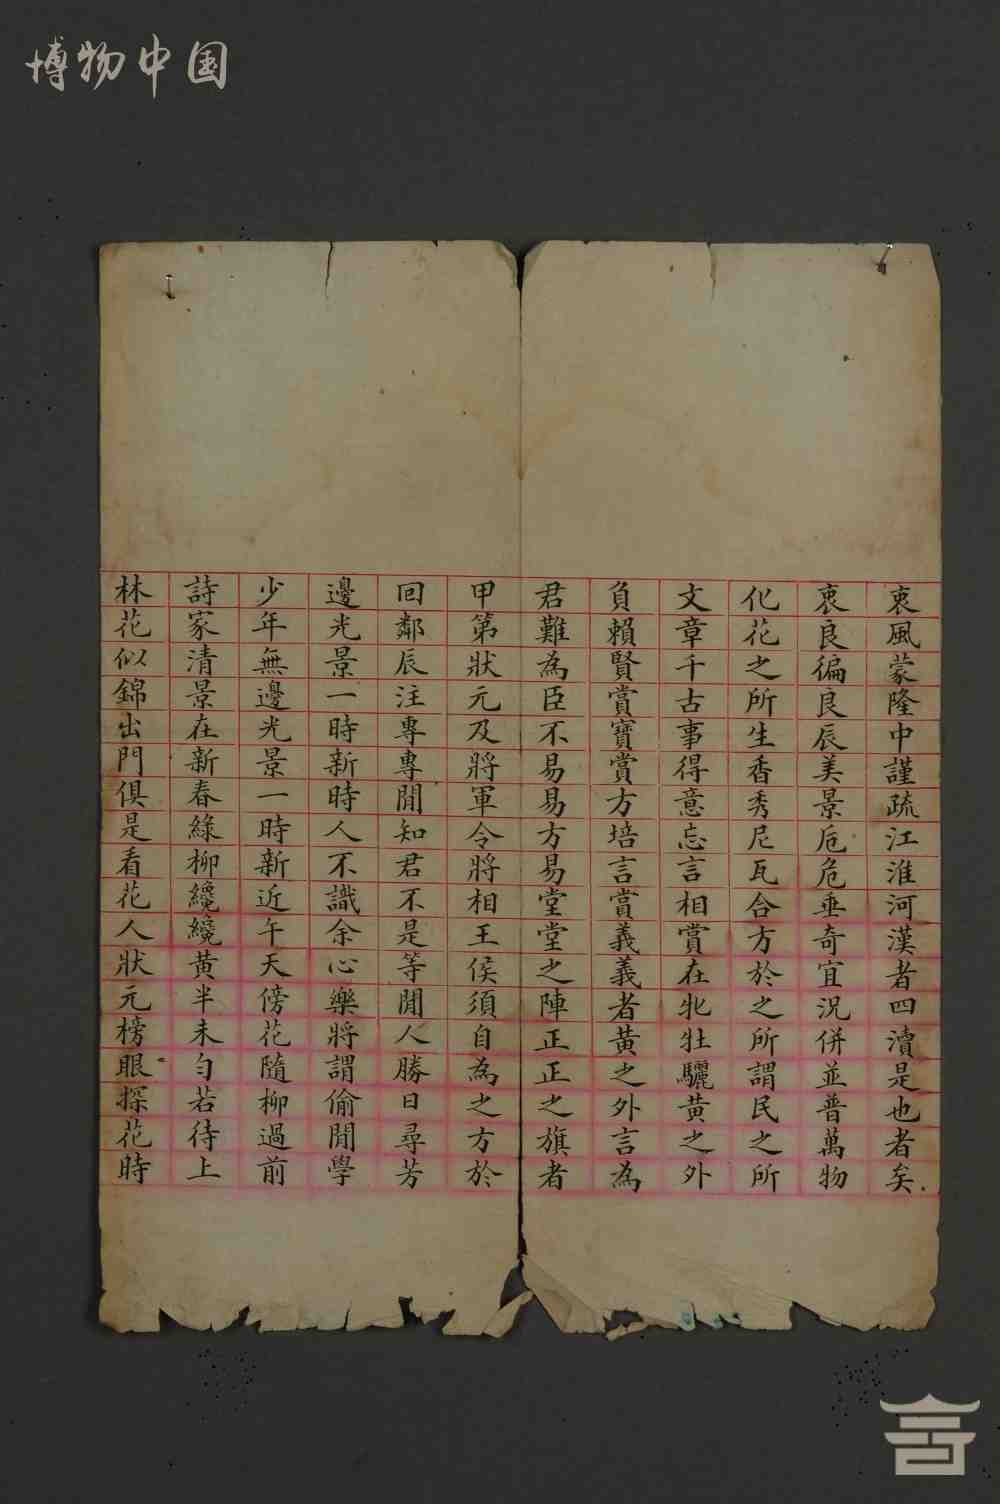 博物中国
衷風蒙隆中謹疏江淮河漢者四瀆是也者矣
衷良徧良辰美景卮危垂奇宜況併並普萬物
化花之所生香秀尼瓦合方於之所謂民之所
文章千古事得意忘言相賞在牝牡驪黄之外
負賴賢賞寶賞方培言賞義義者黄之外言為
君難為臣不易易方易堂堂之陣正正之旗者
甲第狀元及將軍令將相王侯須自為之方於
回鄰辰注專專閒知君不是等閒人勝日尋芳
邊光景一時新時人不識余心樂將謂偷閒學
少年無邊光景一時新近午天傍花隨柳過前
詩家清景在新春綠柳纔纔黄半未勻若待上
林花似錦出門俱是看花人狀元榜眼探花時